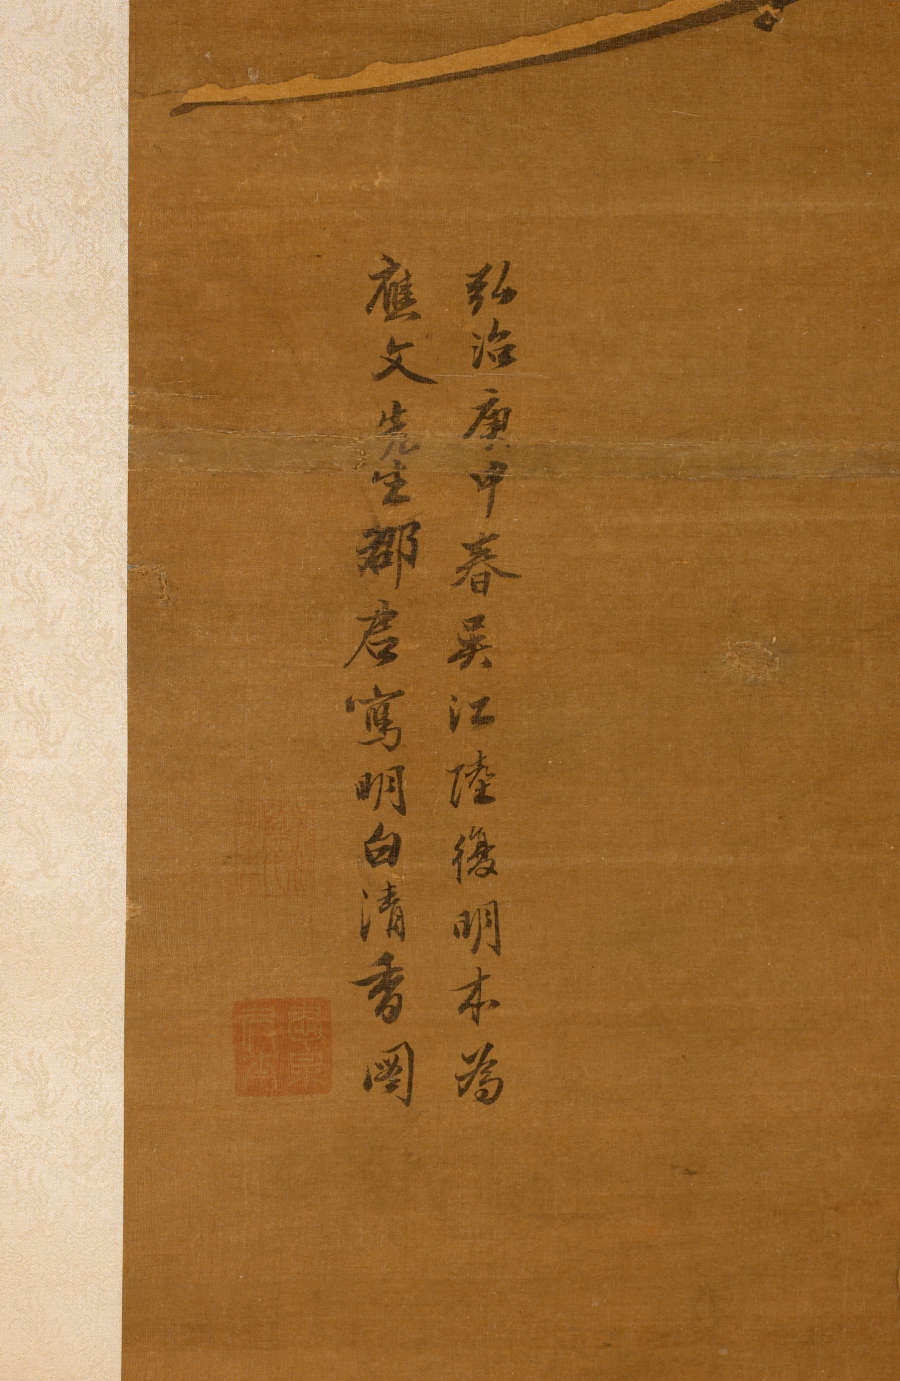 弘治庚申春吳江陸復明本為
應文先生郡君寫明白清香圖